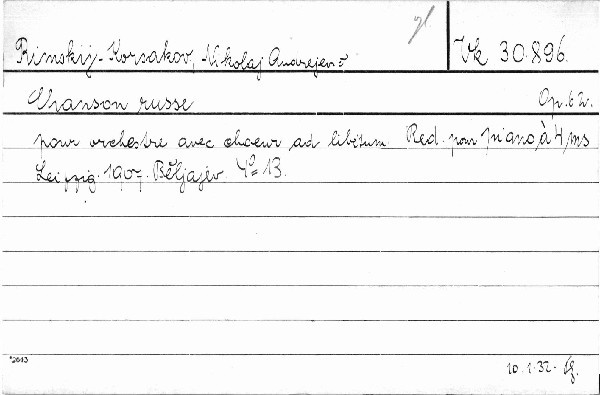 Rimskij-Korsakov, Nikolaj Andrejev= Vk 30.896.
Chanson russe Op. 62.
pour orchestre avec choeur ad libitum. Red. pour piano à 4/ms
Leipzig. 1907. Bĕljajev. 4° 13.
*2613
10.1.32.